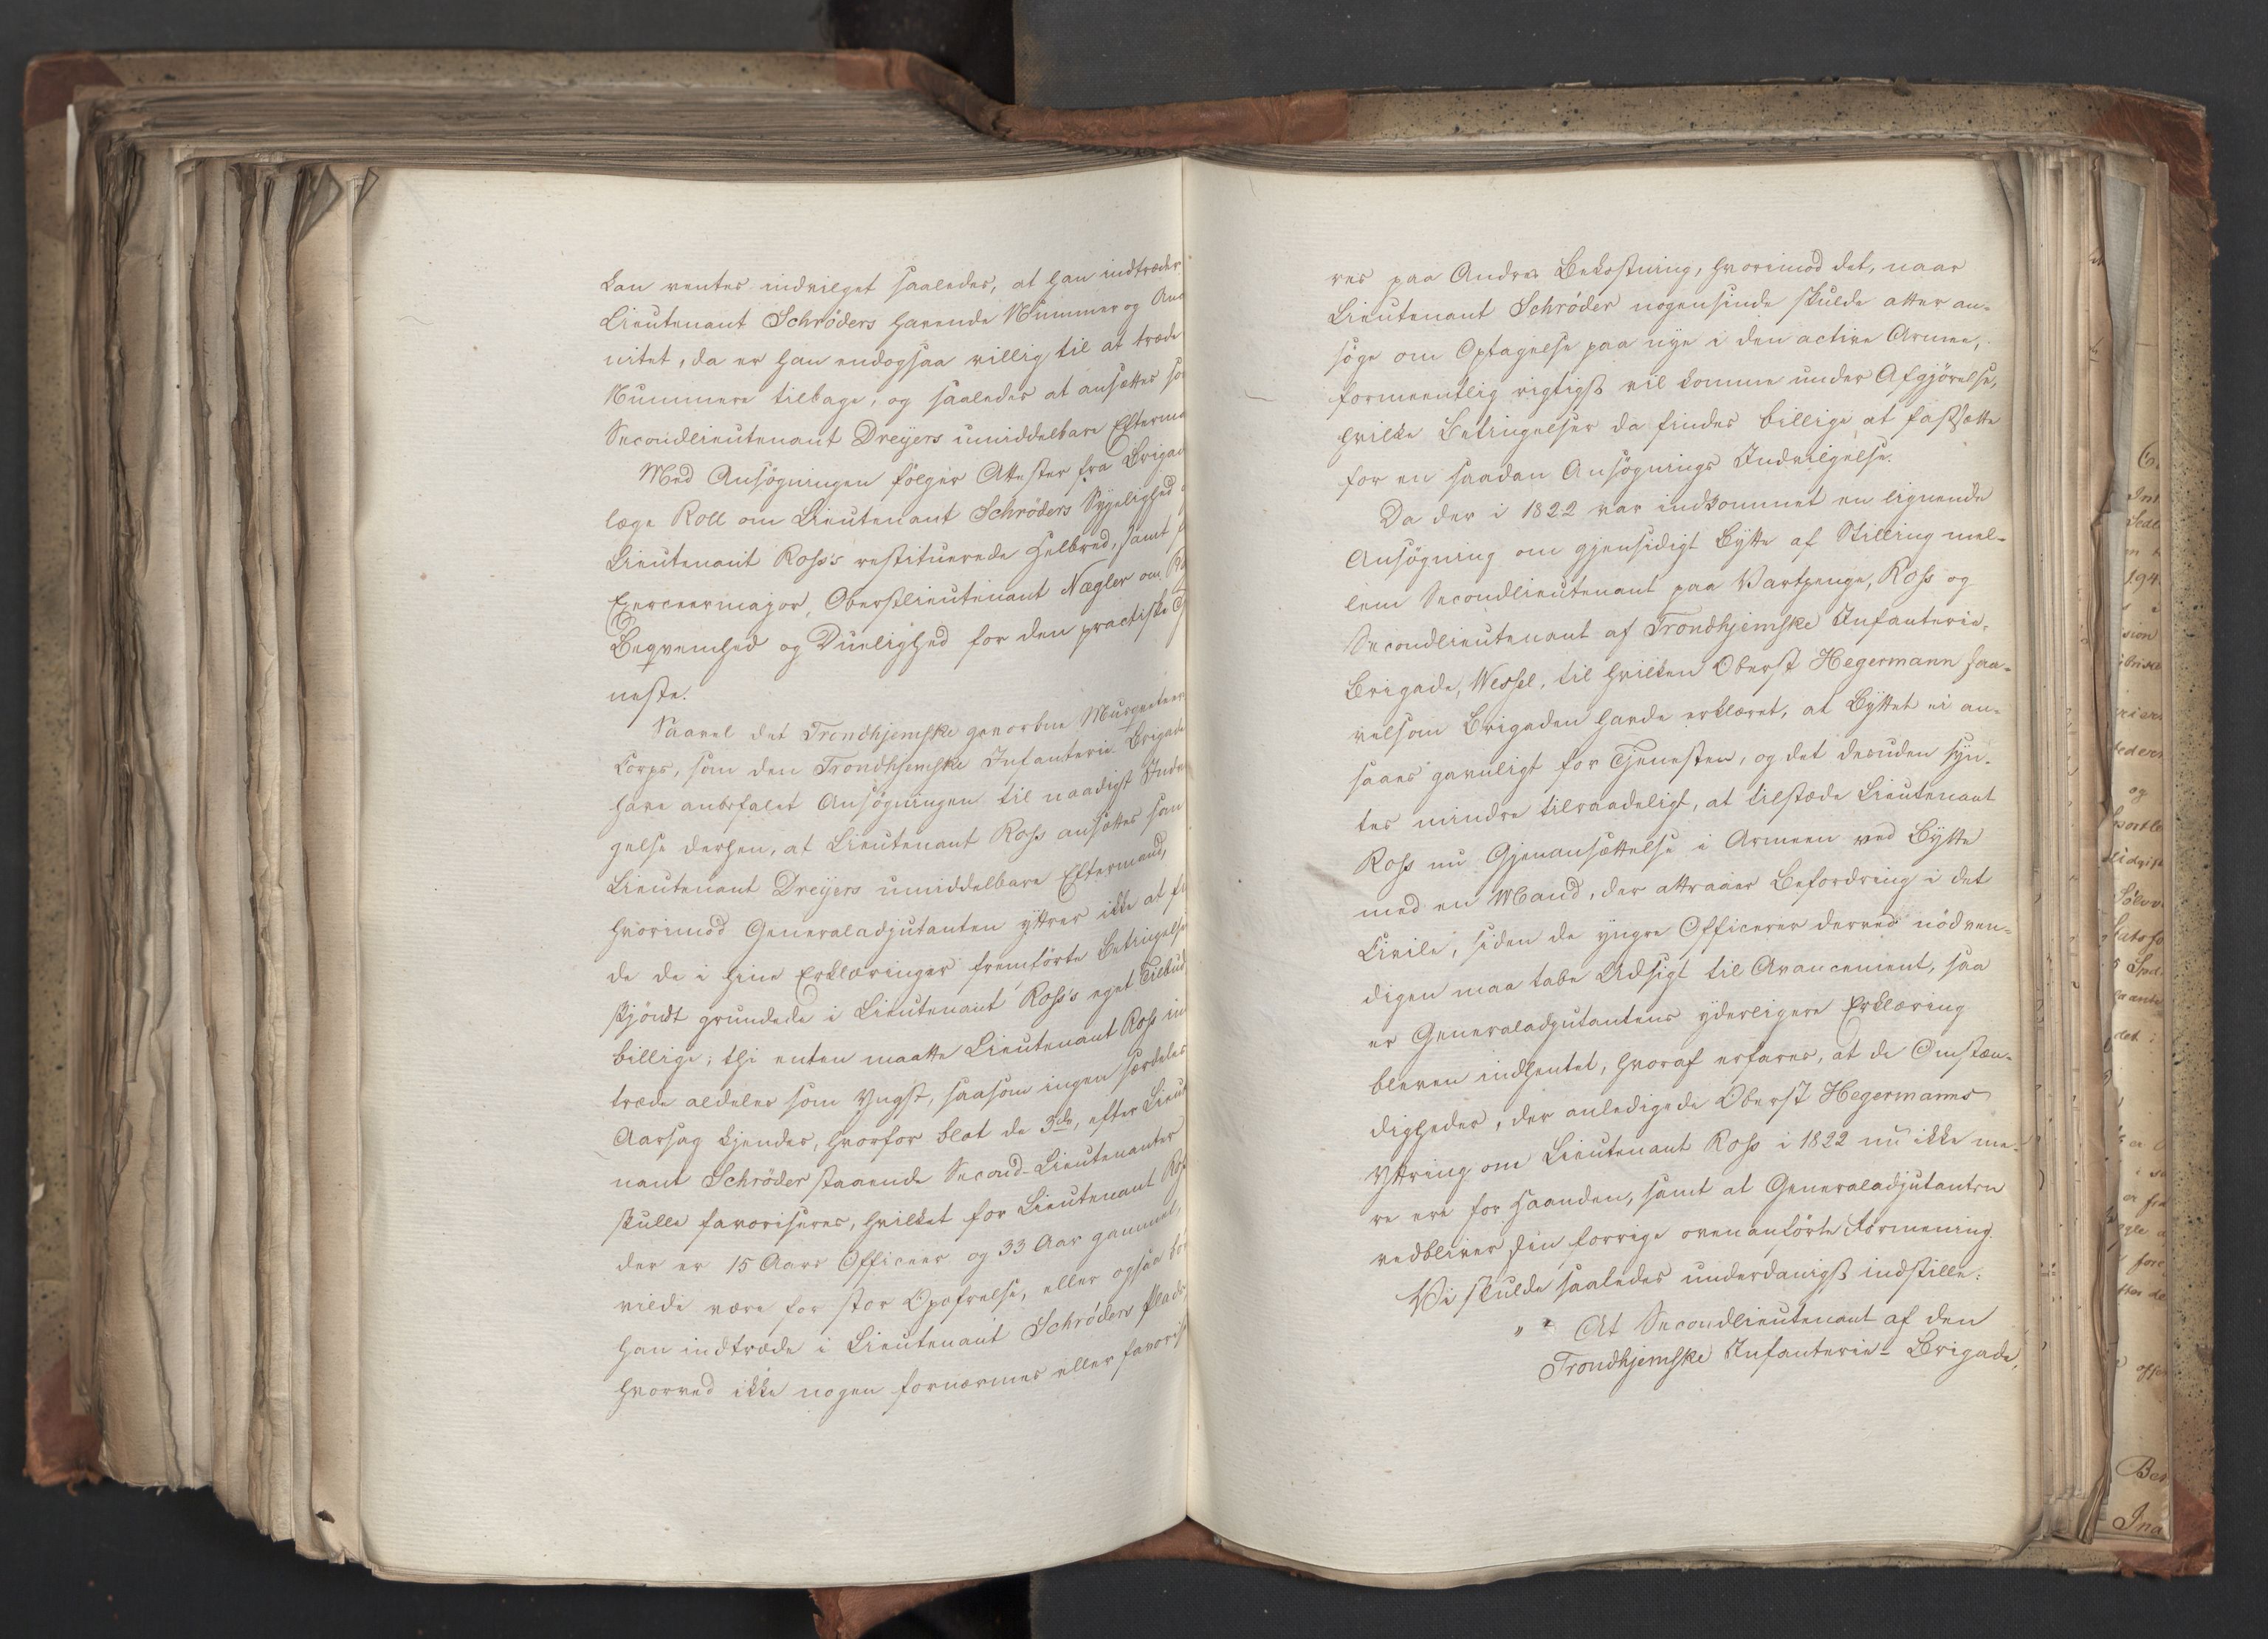 kan ventes indvilget saaledes, at han indtræder
Lieutenant Schröders havende Nummer og Anc
nitet, da er han endogsaa villig til at træde
Nummere tilbage, og saaledes at ansættes so
Secondlieutenant Dreÿers umiddelbare Efterma
Med Ansögningen fölger Attester fra Brigad
læge Roll om Lieutenant Schröders Sÿgelighed
Lieutenant Ross's restituerede Helbred, samt
Exerceermajor, Oberstlieutenant Nægler om Ro
Beqvemhed og Duelighed for den practiske
neste.
Saavel det Trondhjemske gevorbne Musqueteer
Corps, som den Trondhjemske Infanterie Brigade
have anbefalet Ansögningen til naadigst Indvil
gelse derhen, at Lieutenant Ross ansættes som
Lieutenant Dreÿers umiddelbare Eftermand,
hvorimod Generaladjutanten ÿttrer ikke at fi
de de i hine Erklæringer fremförte Betingelse
skjöndt grundede i Lieutenant Ross's eget Tilbud
billige; thi enten maatte Lieutenant Ross in
træde aldeles som Yngst, saasom ingen særdeles
Aarsag kjendes, hvorfor blot de 3de, efter Lieut
nant Schröder staaende Second-Lieutenanter
skulle favoriseres, hvilket for Lieutenant Ross
der er 15 Aars Officeer og 33 Aar gammel,
vilde være for stor Opofrelse, eller ogsaa bö
han indtræde i Lieutenant Schröders Plads
hvorved ikke nogen fornærmes eller favoris
res paa Andres Bekostning, hvorimod det, naar
Lieutenant Schröder nogensinde skulde atter an-
söge om Optagelse paa nye i den active Armee,
formeentlig rigtigst vil komme under Afgjörelse,
hvilke Betingelser da findes billige at fastsætte
for en saadan Ansögnings Indvilgelse.
Da der i 1822 var indkommet en lignende
Ansögning om gjensidigt Bÿtte af Stilling mel-
lem Secondlieutenant paa Vartpenge, Ross og
Secondlieutenant af Trondhjemske Infanterie-
Brigade, Wessel, til hvilken Oberst Hegermann saa-
velsom Brigaden havde erklæret, at Bÿttet ei an-
saaes gavnligt for Tjenesten, og det desuden sÿn-
tes mindre tilraadeligt, at tilstæde Lieutenant
Ross nu Gjenansættelse i Armeen ved Bÿtte
med en Mand, der attraaer Befordring i det
Civile, siden de ÿngre Officerer derved nödven-
digen maa tabe Udsigt til Avancement, saa
er Generaladjutantens ÿderligere Erklæring
bleven indhentet, hvoraf erfares, at de Omstæn-
digheder, der anledigede Oberst Hegermanns
Yttring om Lieutenant Ross i 1822 nu ikke me-
re ere for Haanden, samt at Generaladjutanten
vedbliver sin forrige ovenanförte Formening.
Vi skulde saaledes underdanigst indstille:
" At Secondlieutenant af den
Trondhjemske Infanterie-Brigade,